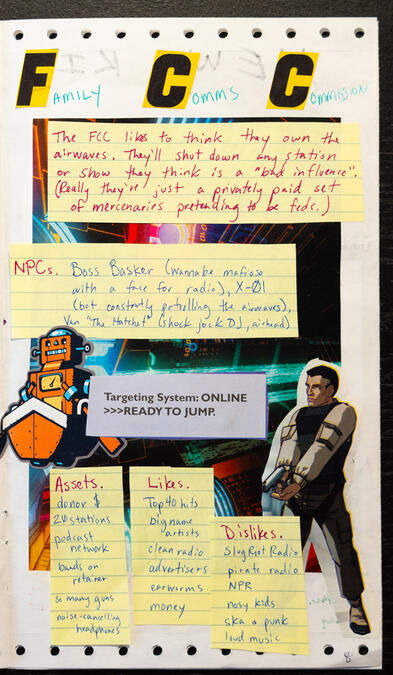 FAMILY COMMS COMMISSION
The FCC likes to think they own the
airwaves. They'll shut down any station
or show they think is a "bad influence".
(Really they're just a privately paid set
of mercenaries pretending to be feds.)
NPCs. Boss Basker (wannabe mafioso
with a face for radio), X-Ø1
(bot constantly patrolling the airwaves),
Van "The Hatchet" (shock jock DJ, airhead)
Targeting System: ONLINE
>>>READY TO JUMP.
Assets.
donor $
20 stations
podcast
network
bands on
retainer
so many guns
noise-cancelling
headphones
Likes.
Top 40 hits
big name
artists
clean radio
advertisers
earworms
money
Dislikes.
Slug Riot Radio
pirate radio
NPR
nosy kids
ska & punk
loud music
8